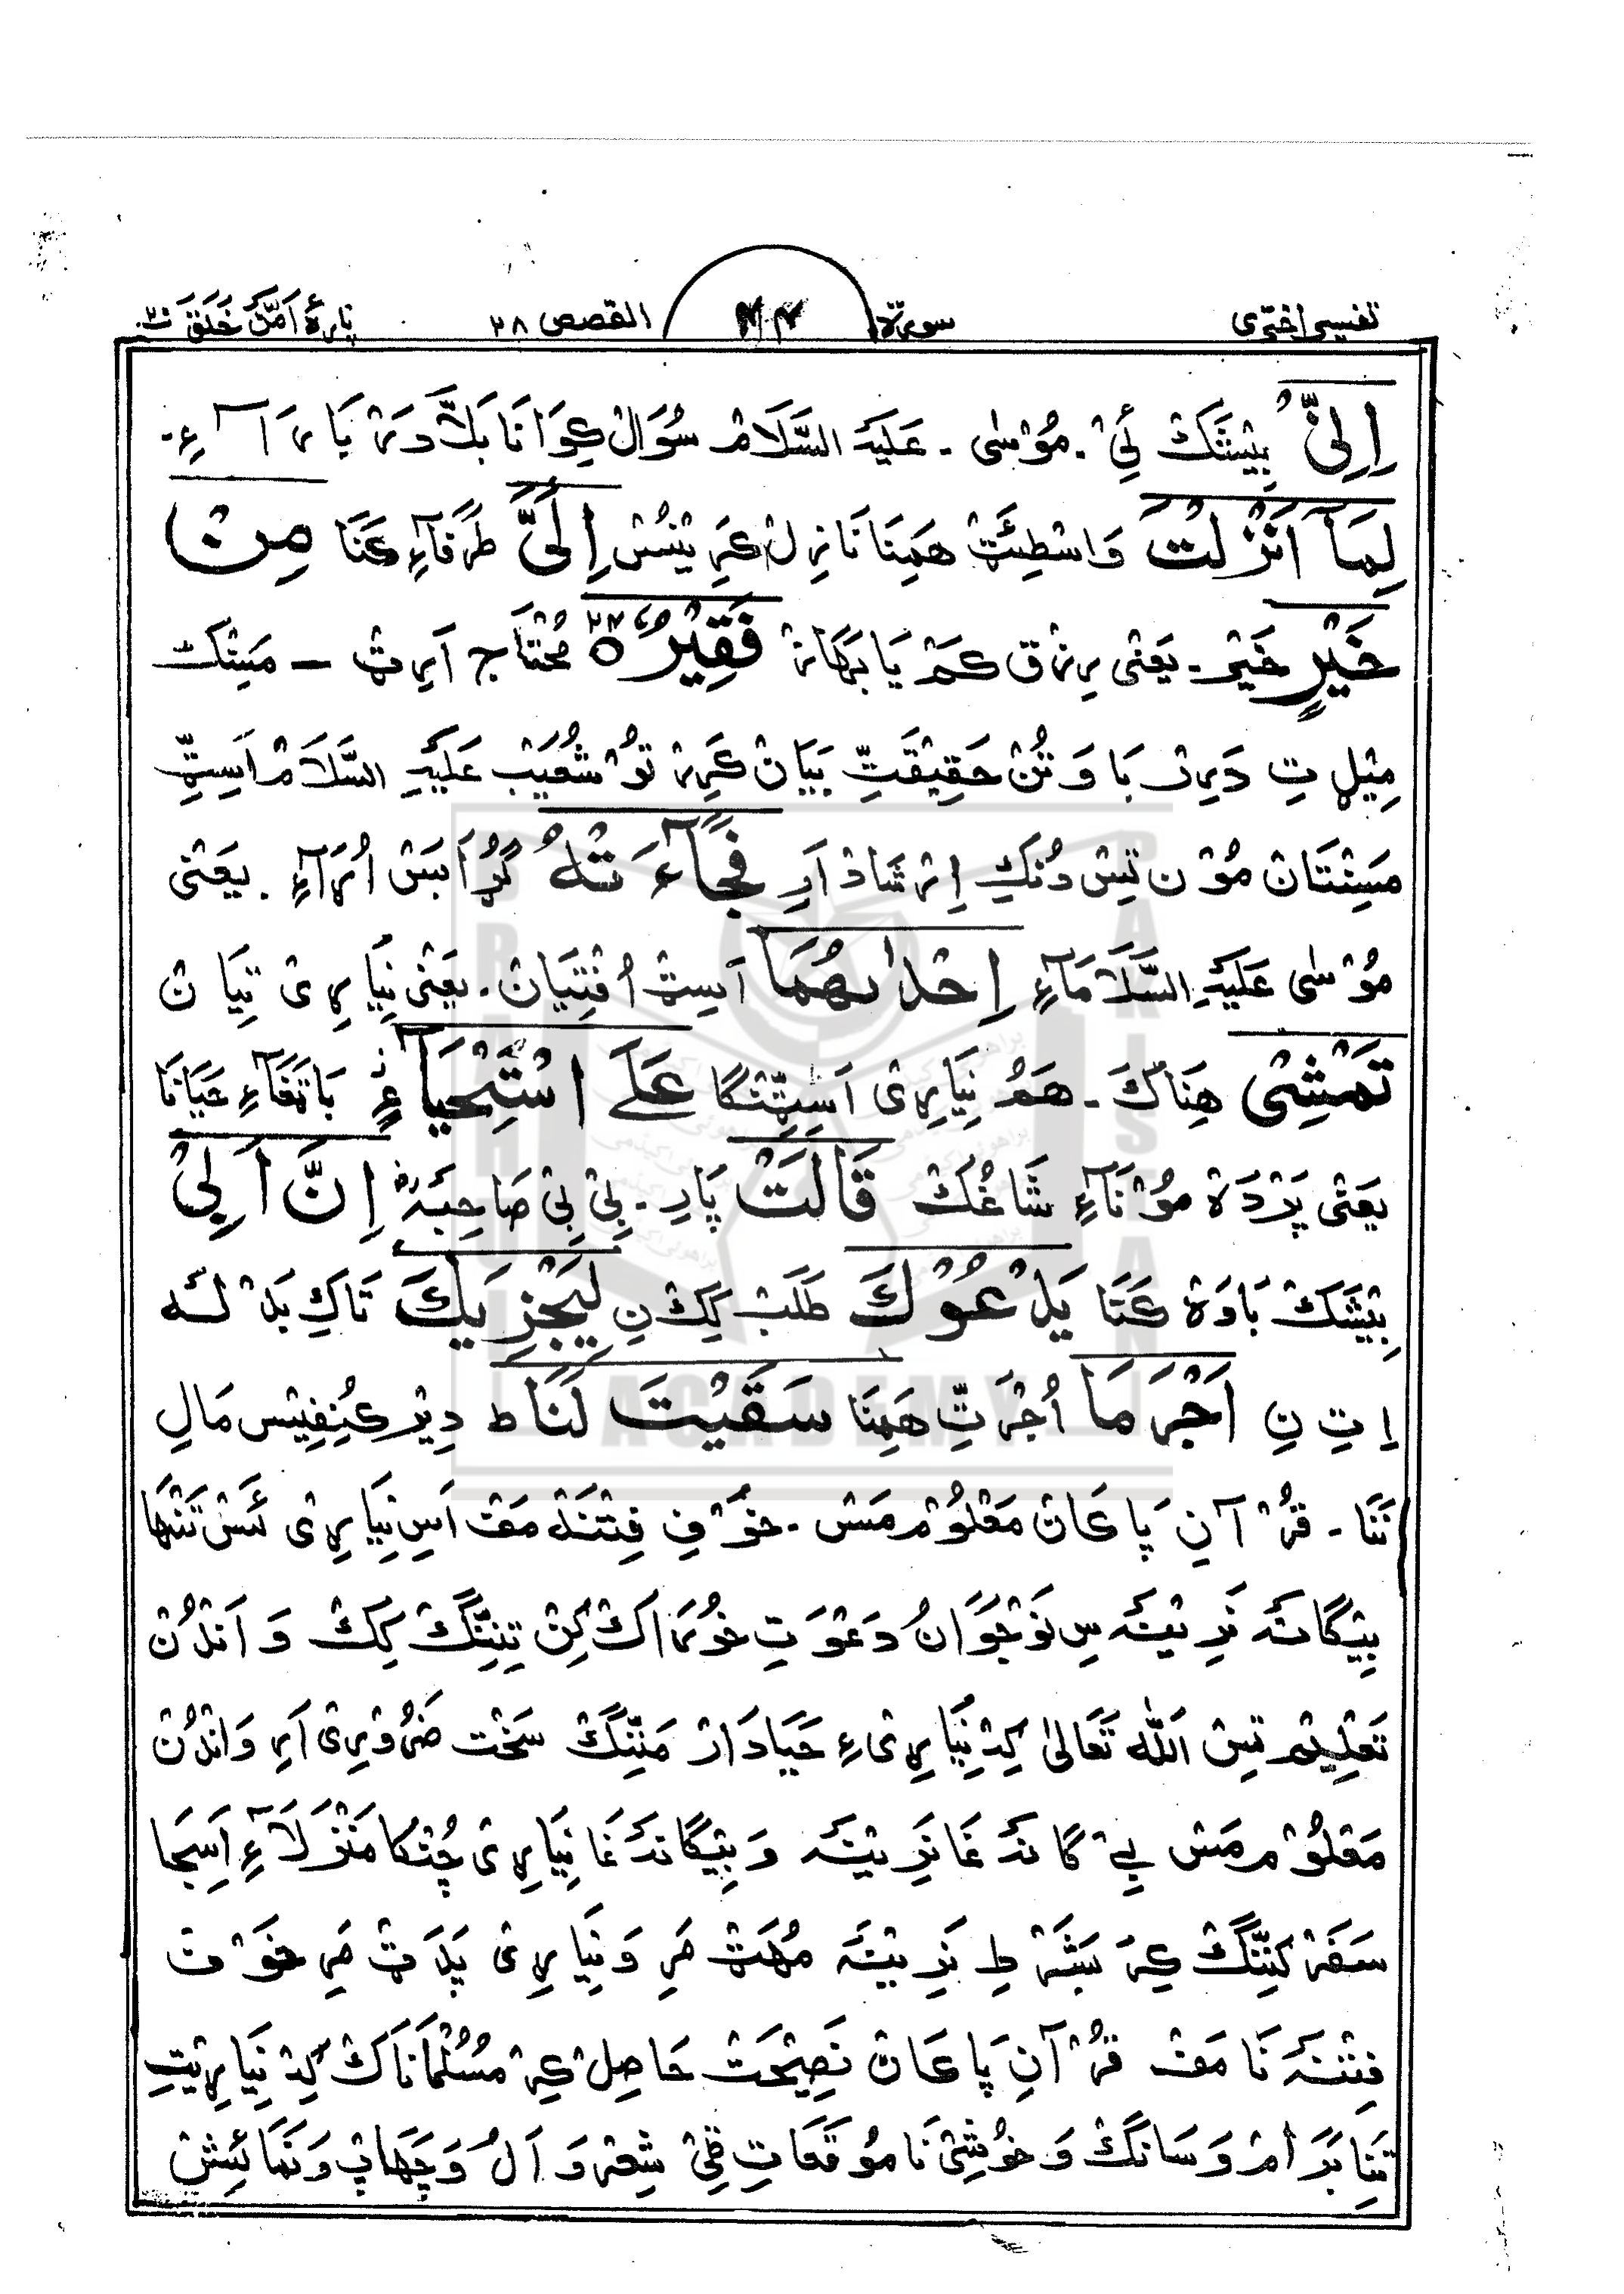 تفسیر اختری سورۃ القصص ۲۸ پارۂ اَمَّنْ خَلَقَ ۲۰
اِنِّیْ بِیْشَّکْ نِّیْ ۔ مُوْسٰی ۔ عَلَیْہَ السَّلَامْ سُوَالْ کِوَانَا
لِمَآ اَنْزَلْتَ وَاسْطِئَتْ ھَمِنَا نَازِلْ کَرِیْنُسْ اِلَیَّ طَرَفَآءِ کَنَا مِنْ
خَیْرٍ خَیْر ۔ یَعْنٖی رِزْق کَمْ یَا بَھَازْ فَقِیْرٌ ۝ ۲۴ مُحْتَاج اَرِیْٹ – مَسِنْک
مِیْلِ تِ دِیرْ بَاوَئُنْ حَقِیْقَتِّ بَیَانْ کَرِرْ تَوْ شُعَیْبْ عَلَیْہِ السَّلَامْ اَسِٹِّ
مَسِنْتَانْ مُوْن تِسْ دُنْکِ اِرْشَادْ اَرِ فَجَآءَتْہُ گُرَا بَسْ اُرَآءِ ۔ یَعْنٖی
مُوْسٰی عَلَیْہِ السَّلَامَآءِ اِحْدٰىهُمَا اَسِٹْ اُفْتِیَانْ ۔ یَعْنٖی نِیَارِیْ تِیَان
تَمْشِیْ ھِنَاکَ ۔ ھَمُ نِیَارِیْ اَسِٹِّنْگَا عَلَے اسْتِحْیَآءٍ بَاتَفَآءِ حَیَانَا
یَعْنٖی پَرْدَہْ مُوْنَآءِ شَاغُکْ قَالَتْ پَارِ ۔ بِیْ بِیْ صَاحِبَہْ اِنَّ اَبِیْ
بِیْشَکْ بَاوَہْ کَنَا یَدْعُوْكَ طَلَبْ کِکْ نِ لِیَجْزِیَكَ تَاکِ بَدْلَہ
اِ تِ نِ اَجْرَ مَا اُجْرَتِّ ھَمِنَا سَقَیْتَ لَنَا ط دِیْر کُنِفِیْس مَالِ
نَنَا ۔ قُرْآنِ پِاکَانْ مَعْلُوْم مَسْ ۔ خَوْفِ فِتْنَہْ مَفْ اَسِ نِیَارِیْ ئَسْ تَنْہَا
بِیْگَانَہ نَرِیْنَہ سِ نَوْجَوَانُ دَعْوَتِ خُوْرَاکْ کِنْ تِنِنْگْ کِکْ وَ اَنْدُنْ
تَعْلِیْم تِسْ اَللّٰہ تَعَالٰی کِہْ نِیَارِیْ ءِ حَیَادَارْ مَنِّنْگْ سَخْت ضَرُوْرِیْ اَرِ وَ انْدُنْ
مَعْلُوْم مَسْ بِےْ گَانَہْ غَا نَرِیْنَہ وَ بِیْگَانَہْ غَا نِیَارِیْ چُنْکَا مَنْزِلَآءِ اَسِجَا
سَفَرْ کَنِّنْگْ کِرَ بَشَرْطِ نَرِیْنَہ مُھَٹْ مَرِ وَ نِیَارِیْ پَدَٹْ مَرِ خَوْف
فِتْنَہ نَا مَفْ قُرْآنِ پِاکَانْ نَصِیْحَتْ حَاصِلْ کِرْ مُسُلْمَانَاکْ کِہْ نِیَارِیْتِ
تِنَا بَرَامْ وَ سَانْگْ وَ خُوْشِیْ نَا مُوقَعَاتِ ٹِیْ شِعْر وَ اَلْ وَ چَھَاپْ وَ نَمَائِشْ
PAKISTAN
ACADEMY